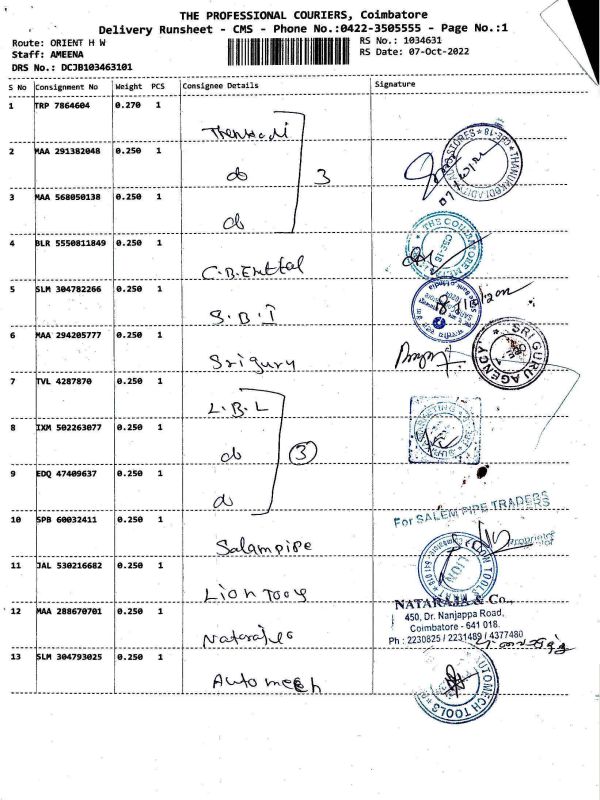 THE PROFESSIONAL COURIERS, Coimbatore
Delivery Runsheet - CMS - Phone No.:0422-3505555 - Page No.:1
Route: ORIENT H W
RS No.: 1034631
Staff: AMEENA
RS Date: 07-Oct-2022
DRS No.: DCJB103463101
S No Consignment No Weight PCS Consignee Details Signature
1 TRP 7864604 0.270 1
2 MAA 291382048 0.250 1
do 3
3 MAA 568050138 0.250 1
do
4 BLR 5550811849 0.250 1
5 SLM 304782266 0.250 1
S.B.I
6 MAA 294205777 0.250 1
Sriguru
SRI GURU AGENCY
7 TVL 4287870 0.250 1
L.B.L
8 IXM 502263077 0.250 1
do 3
9 EDQ 47409637 0.250 1
do
For SALEM PIPE TRADERS
10 SPB 60032411 0.250 1
Proprietor
Salampipe
11 JAL 530216682 0.250 1
LION TOOLS
LION
Lion Tools
12 MAA 288670701 0.250 1
NATARAJA & Co.,
450, Dr. Nanjappa Road,
Coimbatore - 641 018.
Ph : 2230825 / 2231489 / 4377480
13 SLM 304793025 0.250 1
Automech
AUTOMECH TOOLS